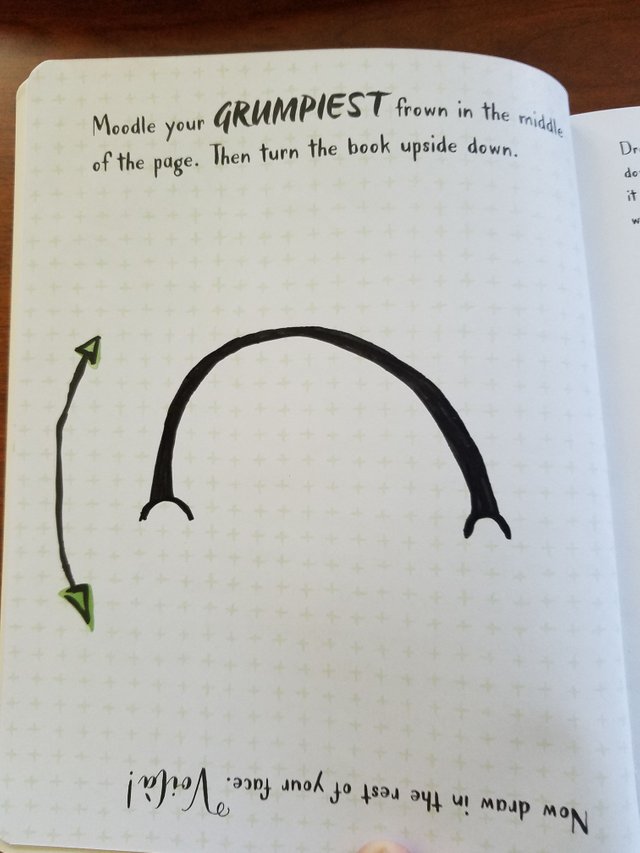 Moodle your GRUMPIEST frown in the middle
of the page. Then turn the book upside down.
Now draw in the rest of your face. Voilà!
Dr
do
it
w